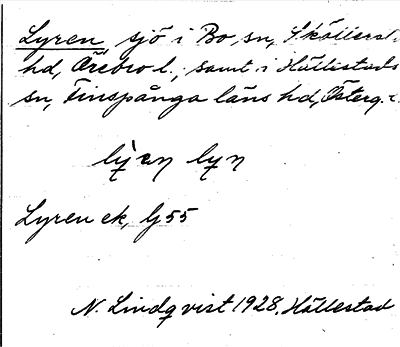 Lyren, sjö i Bo sn, Sköllerst.
hd, Örebro l., samt i Hällestads
sn, Finspånga läns hd, Österg. l.
lyren lyn
Lyren ek, bl 55
N. Lindqvist 1928. Hällestad